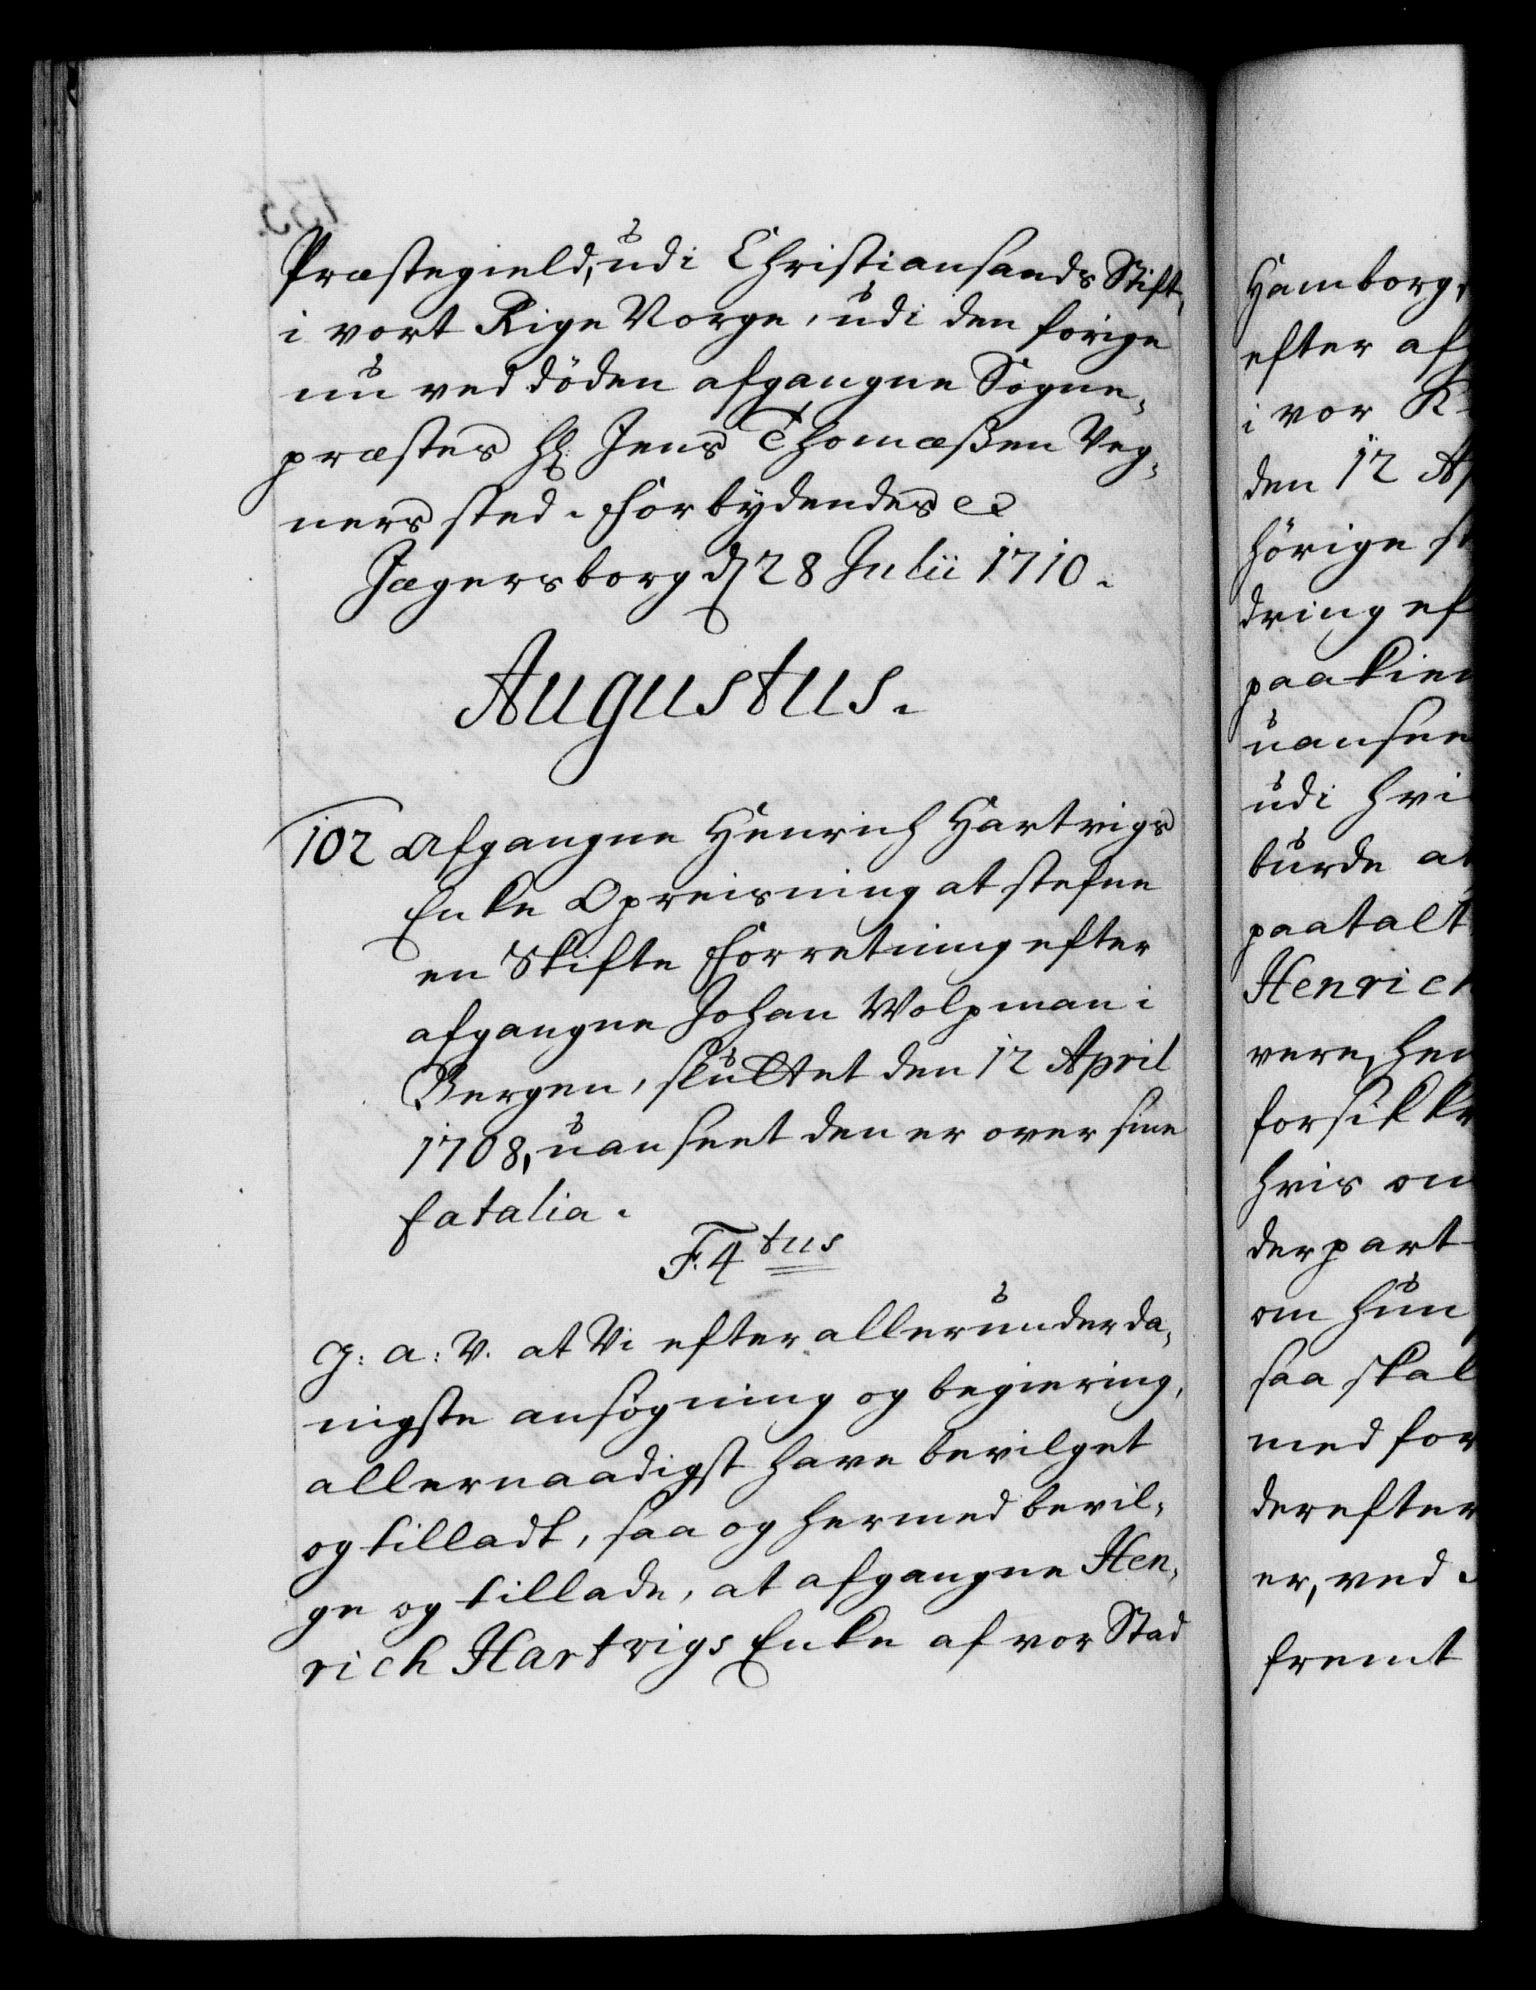 Præstegield, udi Christiansands Stift,
i vort Rige Norge, udi den forige
nu ved döden afgangne Sogne-
præstes Hr: Jens Thomæßen Veg-
ners sted. Forbydendes &c
Jægersborg d 28 Julii 1710.
Augustus.
102 Afgangne Henrich Hartvigs
Enke Opreisning at stefne
en Skifte Forretning efter
afgangne Johan Wolpman i
Bergen, sluttet den 12 April
1708, uanseet den er over sine
fatalia.
F. 4tus
G: a: V. at Vi efter allerunderda-
nigste ansøgning og begiering,
allernaadigst have bevilget
og tilladt, saa og hermed bevil-
ge og tillade, at afgangne Hen-
rich Hartvigs Enke af vor Stad
Hamborg,
efter af
i vor
den 12 Ap
hörige
dring ef
paakien
uansee
udi hvi
burde at
paatalt
Henrich
vere, hen
forsikkr
hvis on
derpart
om hun
saa skal
med for
derefter
er, ved
fremt